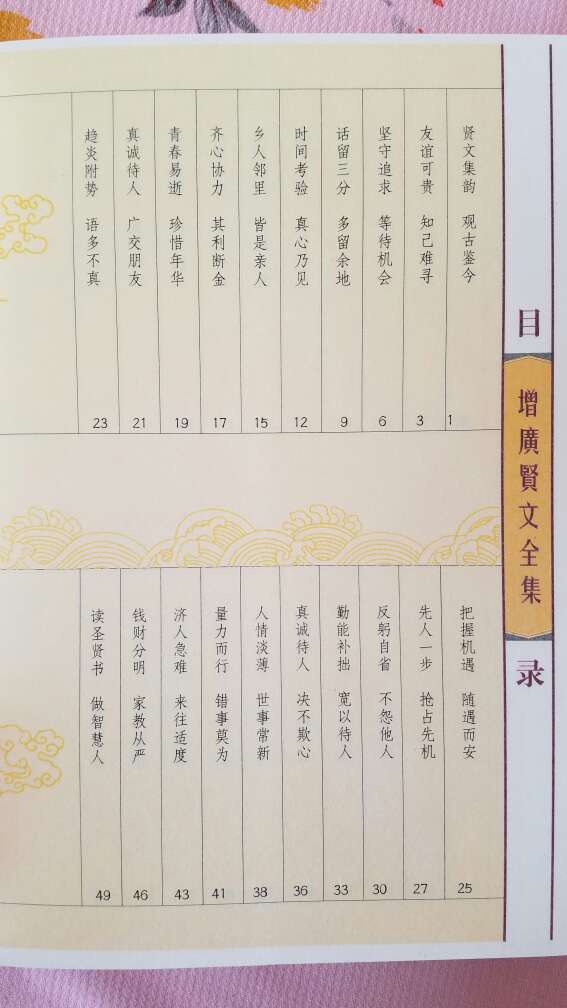 目
增廣賢文全集
录
贤文集韵 观古鉴今 1
友谊可贵 知己难寻 3
坚守追求 等待机会 6
话留三分 多留余地 9
时间考验 真心乃见 12
乡人邻里 皆是亲人 15
齐心协力 其利断金 17
青春易逝 珍惜年华 19
真诚待人 广交朋友 21
趋炎附势 语多不真 23
把握机遇 随遇而安 25
先人一步 抢占先机 27
反躬自省 不怨他人 30
勤能补拙 宽以待人 33
真诚待人 决不欺心 36
人情淡薄 世事常新 38
量力而行 错事莫为 41
济人急难 来往适度 43
钱财分明 家教从严 46
读圣贤书 做智慧人 49